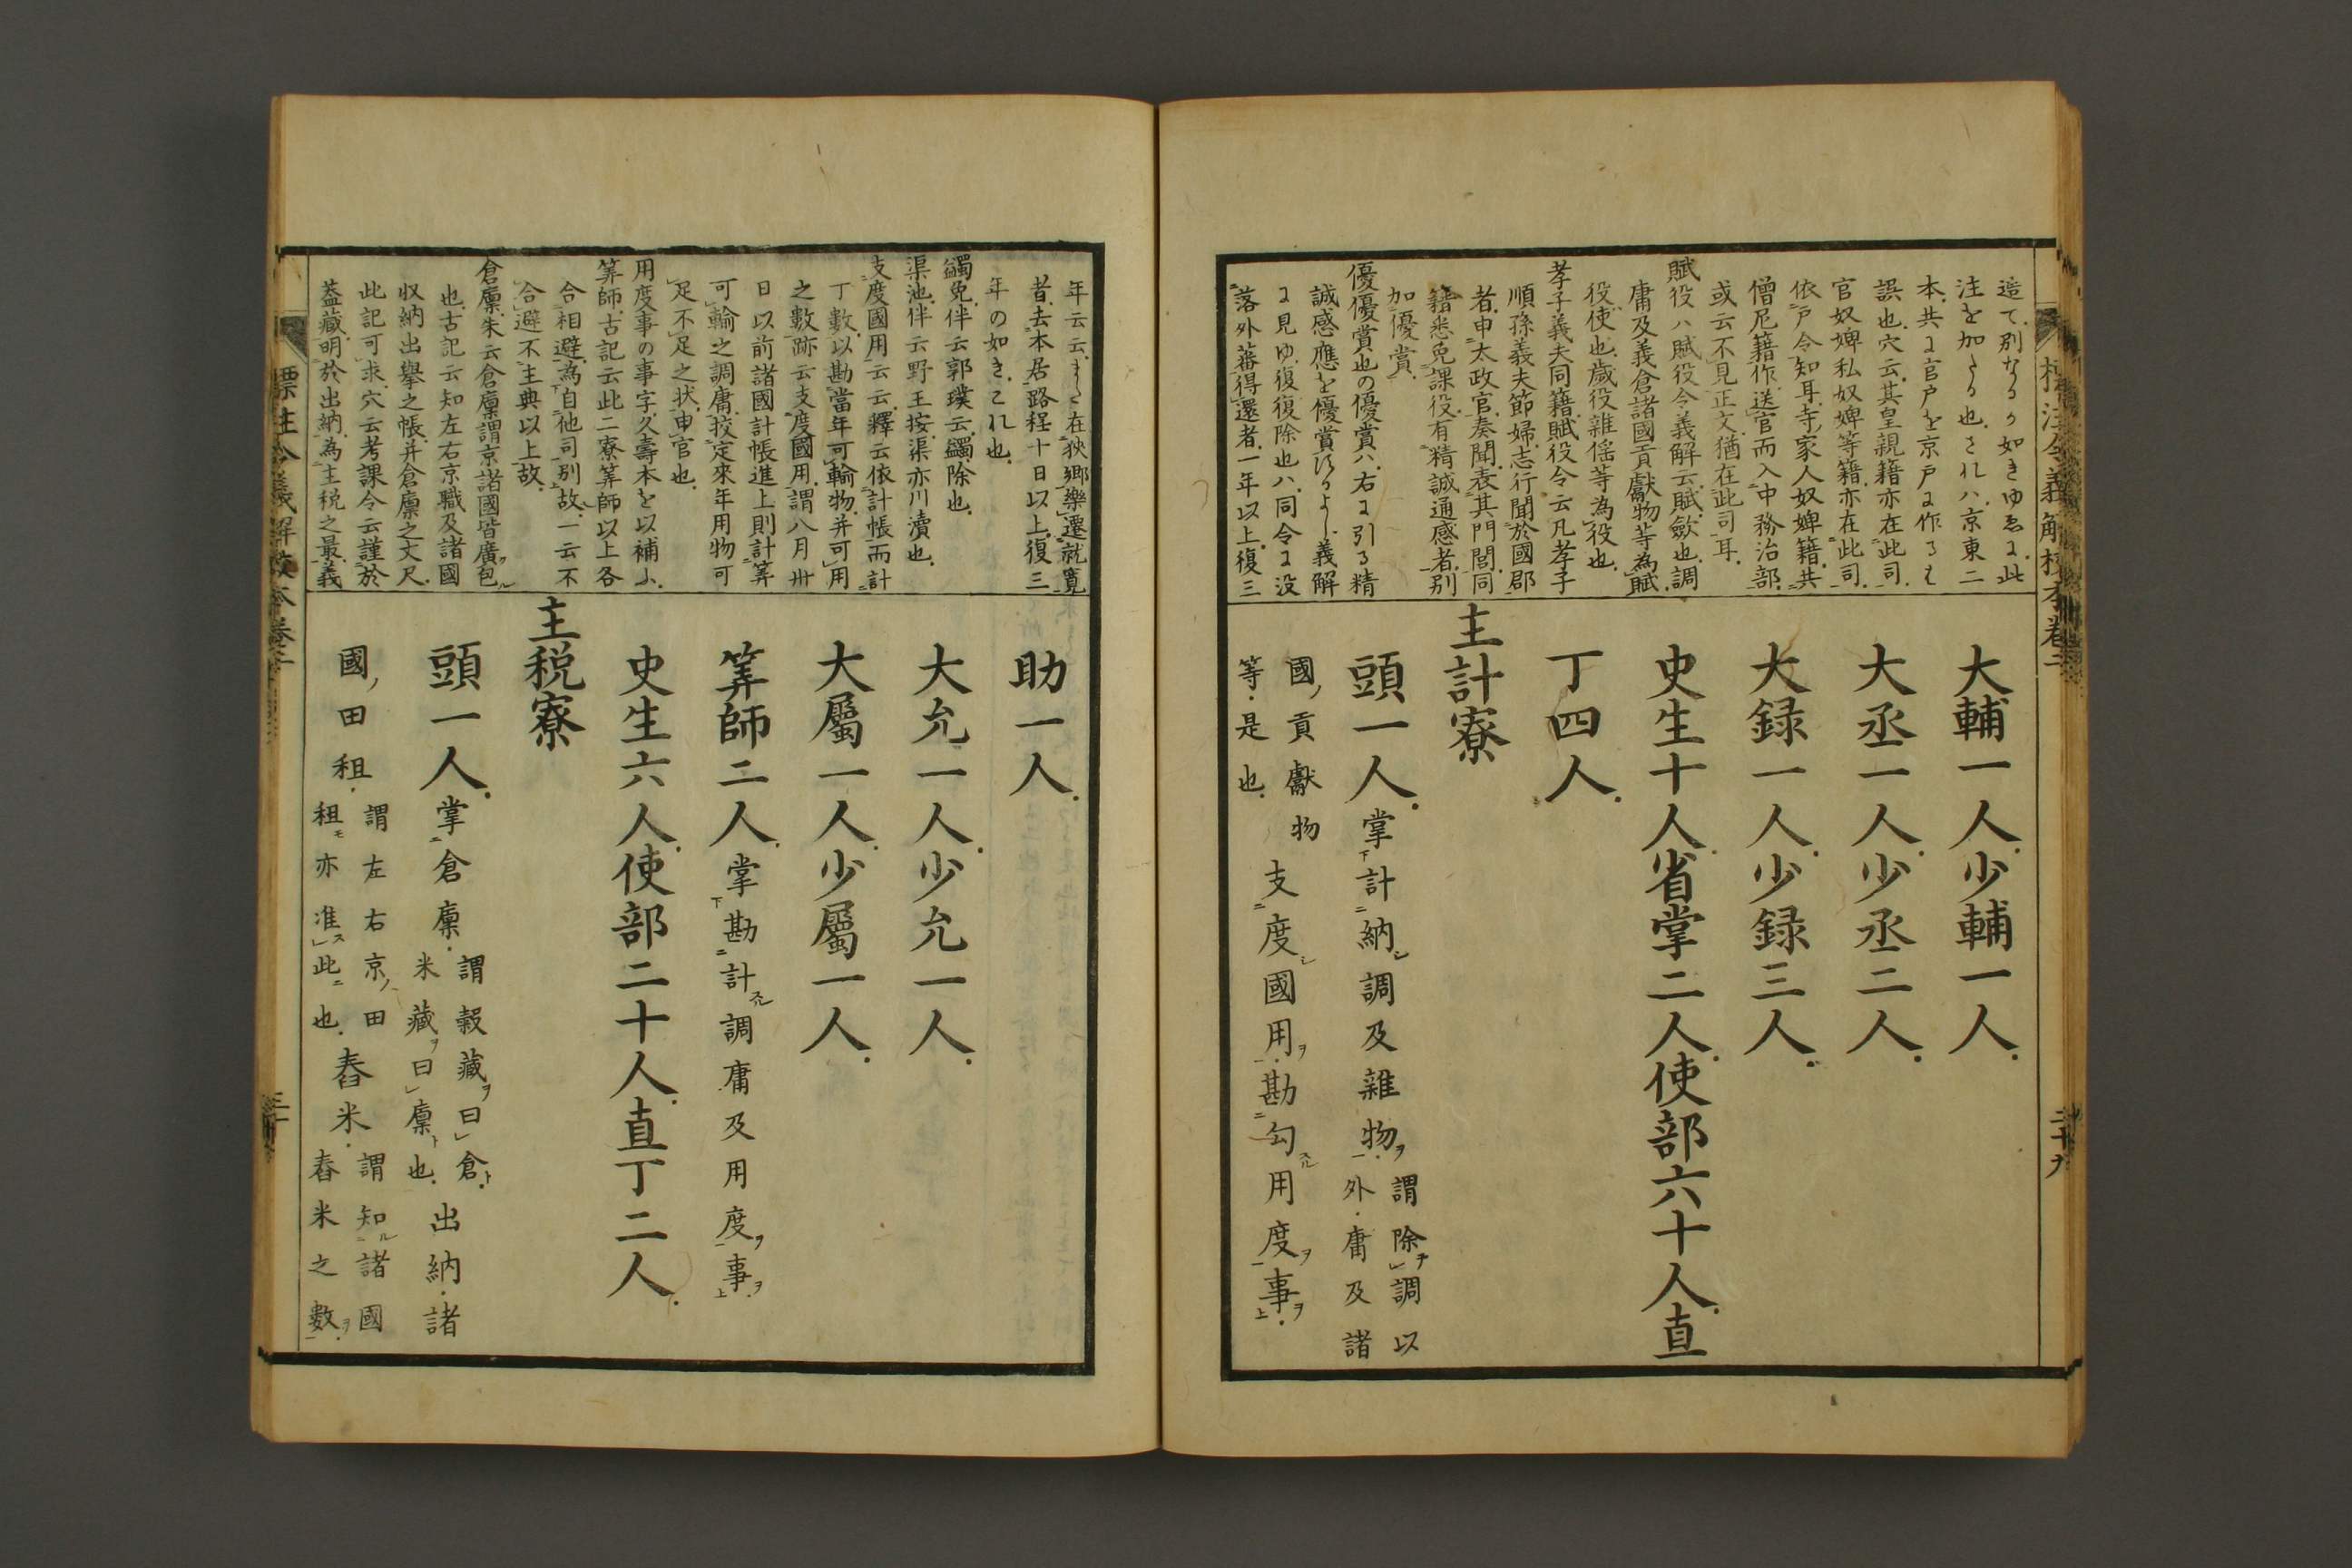 造て別なるか如きゆゑに此
注を加たる也されハ京東二
本共に官戸を京戸に作るは
誤也穴云其皇親籍亦在此司
官奴婢私奴婢等籍亦在此司
依戸令知耳寺家人奴婢籍共
僧尼籍作送官而入中務治部
或云不見正文猶在此司耳
賦役ハ賦役令義解云賦斂也調
庸及義倉諸國貢獻物等為賦
役使也歳役雜徭等為役也
孝子義夫同籍賦役令云凡孝子
順孫義夫節婦志行聞於國郡
者申太政官奏聞表其門閭同
籍悉免課役有精誠通感者別
加優賞
優優賞也の優賞ハ右に引る精
誠感應を優賞するよし義解
に見ゆ復復除也ハ同令に没
落外蕃得還者一年以上復三
大輔一人少輔一人
大丞一人少丞二人
大録一人少録三人
史生十人省掌二人使部六十人直
丁四人
主計寮
頭一人掌計納調及雜物謂除調以外庸及諸
國貢獻物等是也支度國用勘勾用度事
年云云また在狹郷樂遷就寛
者去本居路程十日以上復三
年の如きこれ也
蠲免伴云郭璞云蠲除也
渠池伴云野王按渠亦川瀆也
支度國用云云釋云依計帳而計
丁數以勘當年可輸物并可用
之數跡云支度國用謂八月卅
日以前諸國計帳進上則計筭
可輸之調庸挍定來年用物可
足不足之状申官也
用度事の事字久壽本を以補ふ
筭師古記云此二寮筭師以上各
合相避為自他司別故一云不
合避不主典以上故
倉廩朱云倉廩謂京諸國皆廣包
也古記云知左右京職及諸國
収納出擧之帳并倉廩之文尺
此記可求穴云考課令云謹於
蓋藏明於出納為主税之最義
助一人
大允一人少允一人
大屬一人少屬一人
筭師二人掌勘計調庸及用度事
史生六人使部二十人直丁二人
主税寮
頭一人掌倉廩謂穀藏曰倉米藏曰廩也出納諸
國田租謂左右京田租亦准此也舂米謂知諸國舂米之數
標注令義解校本卷二